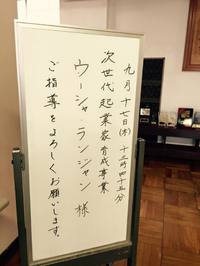 九月十七日(木)十三時四十五分
次世代起業家育成事業
ウーシャ・ランジャン 様
ご指導をよろしくお願いします。